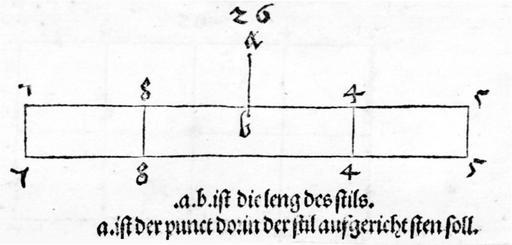 26
a
7 8 4 5
b
7 8 4 5
.a.b.ist die leng des stils.
a.ist der punct dorin der stil aufgericht sten soll.